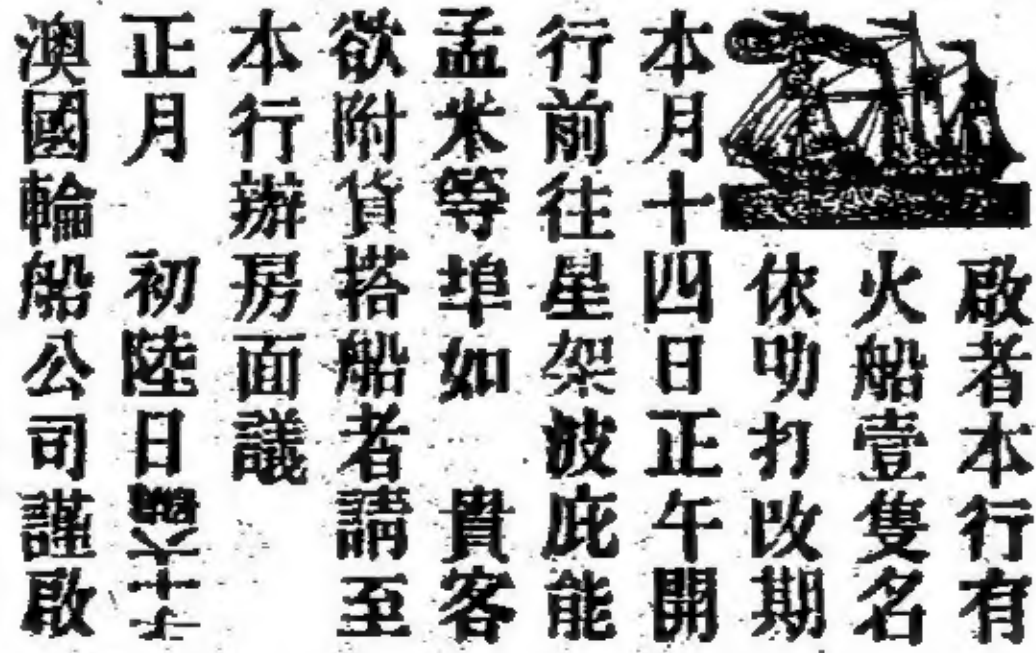 啟者本行有
火船壹隻名
依叻打改期
本月十四日正午開
行前往星架波庇能
孟米等埠如 貴客
欲附貨搭船者請至
本行辦房面議
正月 初陸日
澳國輪船公司謹啟